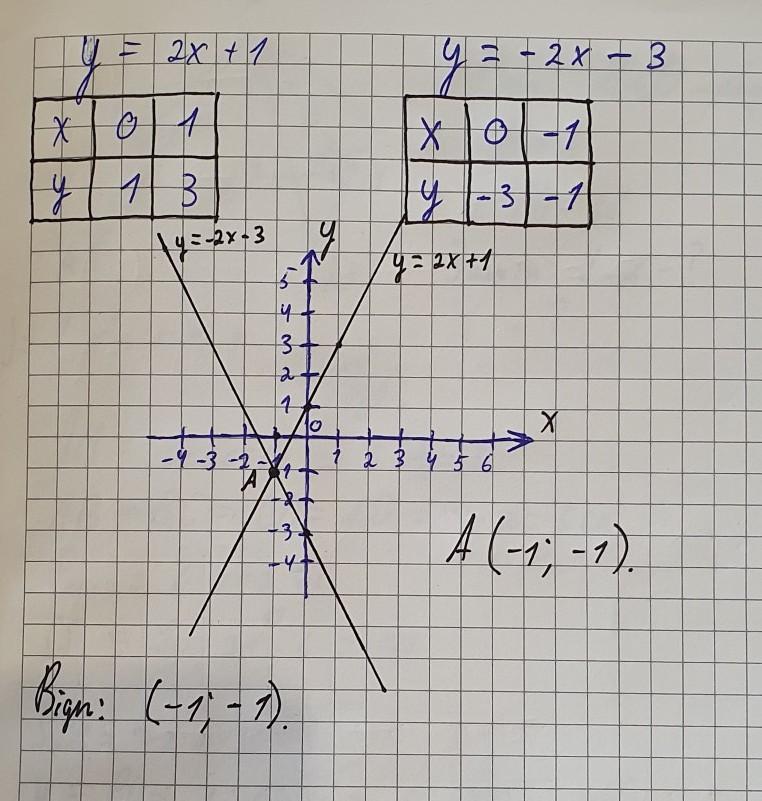 y = 2x + 1
y = -2x - 3
x 0 1
y 1 3
x 0 -1
y -3 -1
y = -2x - 3
y
y = 2x + 1
5
4
3
2
1
0
x
-4 -3 -2 -1 1 2 3 4 5 6
A
-1
-2
-3
-4
A (-1; -1).
Відп: (-1; -1).